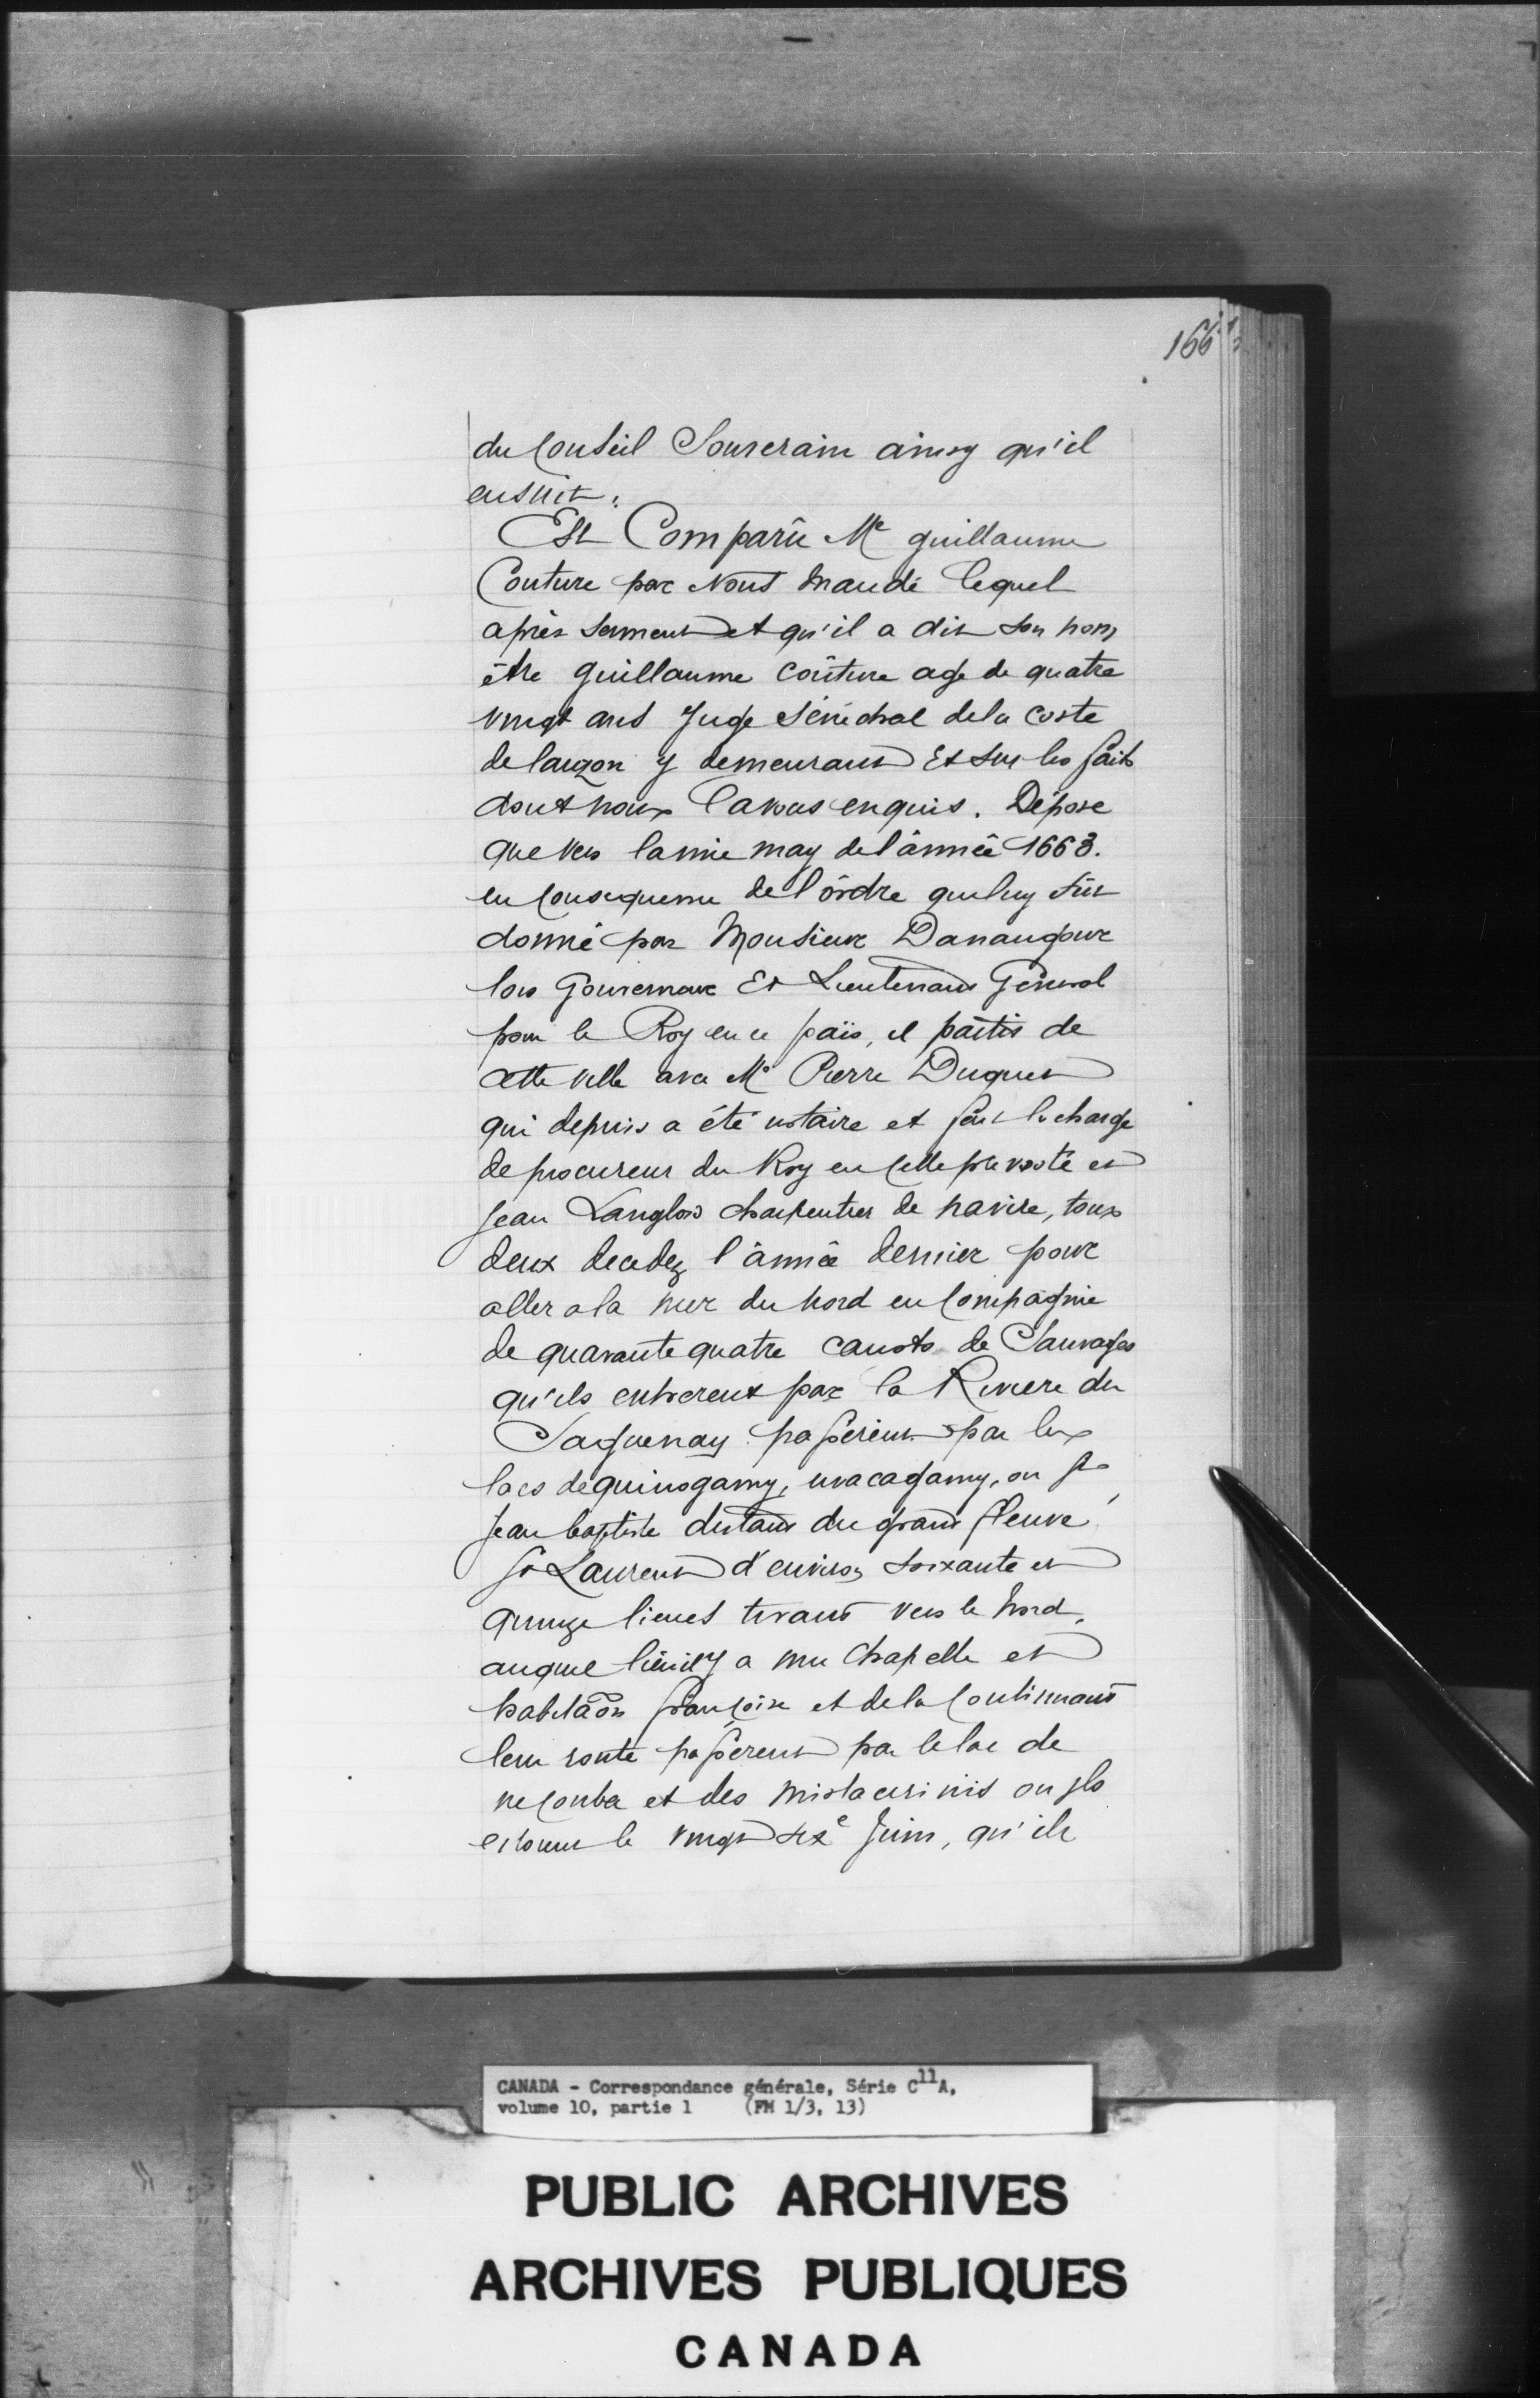 166 1/2
du Conseil Souverain ainsy qu'il
ensuit.
Est Comparû Me guillaume
Couture par Nous Mandé lequel
après serment et qu'il a dit son nom
être guillaume coûture age de quatre
vingt ans Juge sénéchal dela coste
de lauzon y demeurant Et sur les faits
dont nous l'avons enquis. Dépose
que vers lamie may del'année 1663.
en Consequence de l'ordre queluy fût
donné par Monsieur Danaugour
lors Gouverneur Et Lieutenant Général
pour le Roy en ce païs, il partit de
cette ville avec Me Pierre Duquet
qui depuis a été notaire et fait la charge
de procureur du Roy en cette prevosté et
Jean Langlois charpentier de navire, tous
deux decedez l'année dernier pour
aller a la mer du Nord en Compagnie
de quarante quatre canots de Sauvages
qu'ils entrerent par la Riviere du
Saguenay passerent par les
lacs dequinogamy, uvacagamy, ou St
Jean baptiste distant du grand fleuve
St Laurent d'environ soixante et
quinze lieues tirant vers le Nord,
auquel lieu il y a une Chapelle et
habitaôn françoise et dela Continuant
leur route passerent par le lac de
neConba et des mistacirinis ou ils
etoient le vingt sixe Juin, qu'ils
CANADA - Correspondance générale, Série C11A,
volume 10, partie 1 (FM 1/3, 13)
PUBLIC ARCHIVES
ARCHIVES PUBLIQUES
CANADA